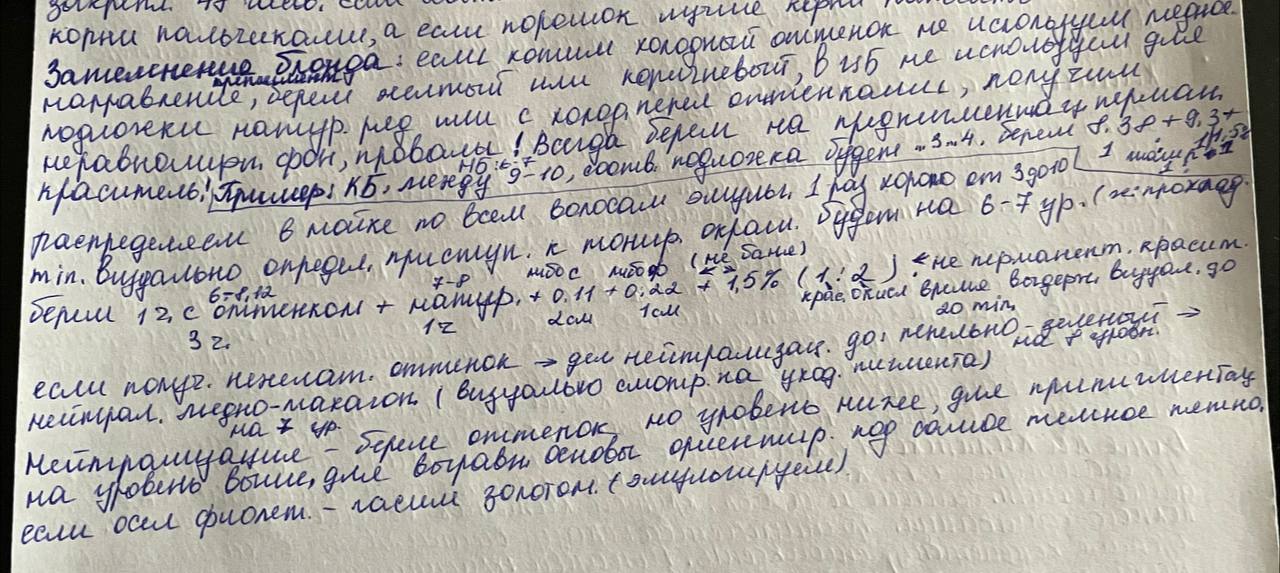 закрепл. 45
корни пальчиками, а если порошок лучше корни
Затемнение блонда: если хотим холодный оттенок не используем медное
препигмент
направление, берем желтый или коричневый, в ЦБ не используем для
подложки натур. ряд или с холод. пепел оттенками, получим
неравномерн. фон, провалы! Всегда берем на предпигментац. перман.
краситель! Пример: КБ. между 9-10, соотв. подложка будет "3"4. берем 8,38+9,3+
НБ: 6-7
распределяем в мойке по всем волосам эмульг. 1 раз хорошо от 3 до 10
min. визуально опредил, приступ. к тонир. окраш. будет на 6-7 ур. (н: прохлад.
берем 1 ч. с оттенком + натур. + 0.11 + 0.22 + 1,5% (1:2) не перманент. красит.
6-8,12
7-8
либо с либо ф (не баня)
3 ч.
1 ч
2см
1см
крас. окисл время выдерж. визуал. до
20 min.
если получ. нежелат. оттенок → дел нейтрализац. до: пепельно-зеленый →
на 8 уровн.
нейтрал. медно-махагон. (визуалько смотр. на уход. пигмента)
на 7 ур.
Нейтрализация - берем оттенок на уровень ниже, для припигментац
на уровень выше, для выравн. основы ориентир. под самое темное пятно.
если осел фиолет. - гасим золотом. (эмульгируем)